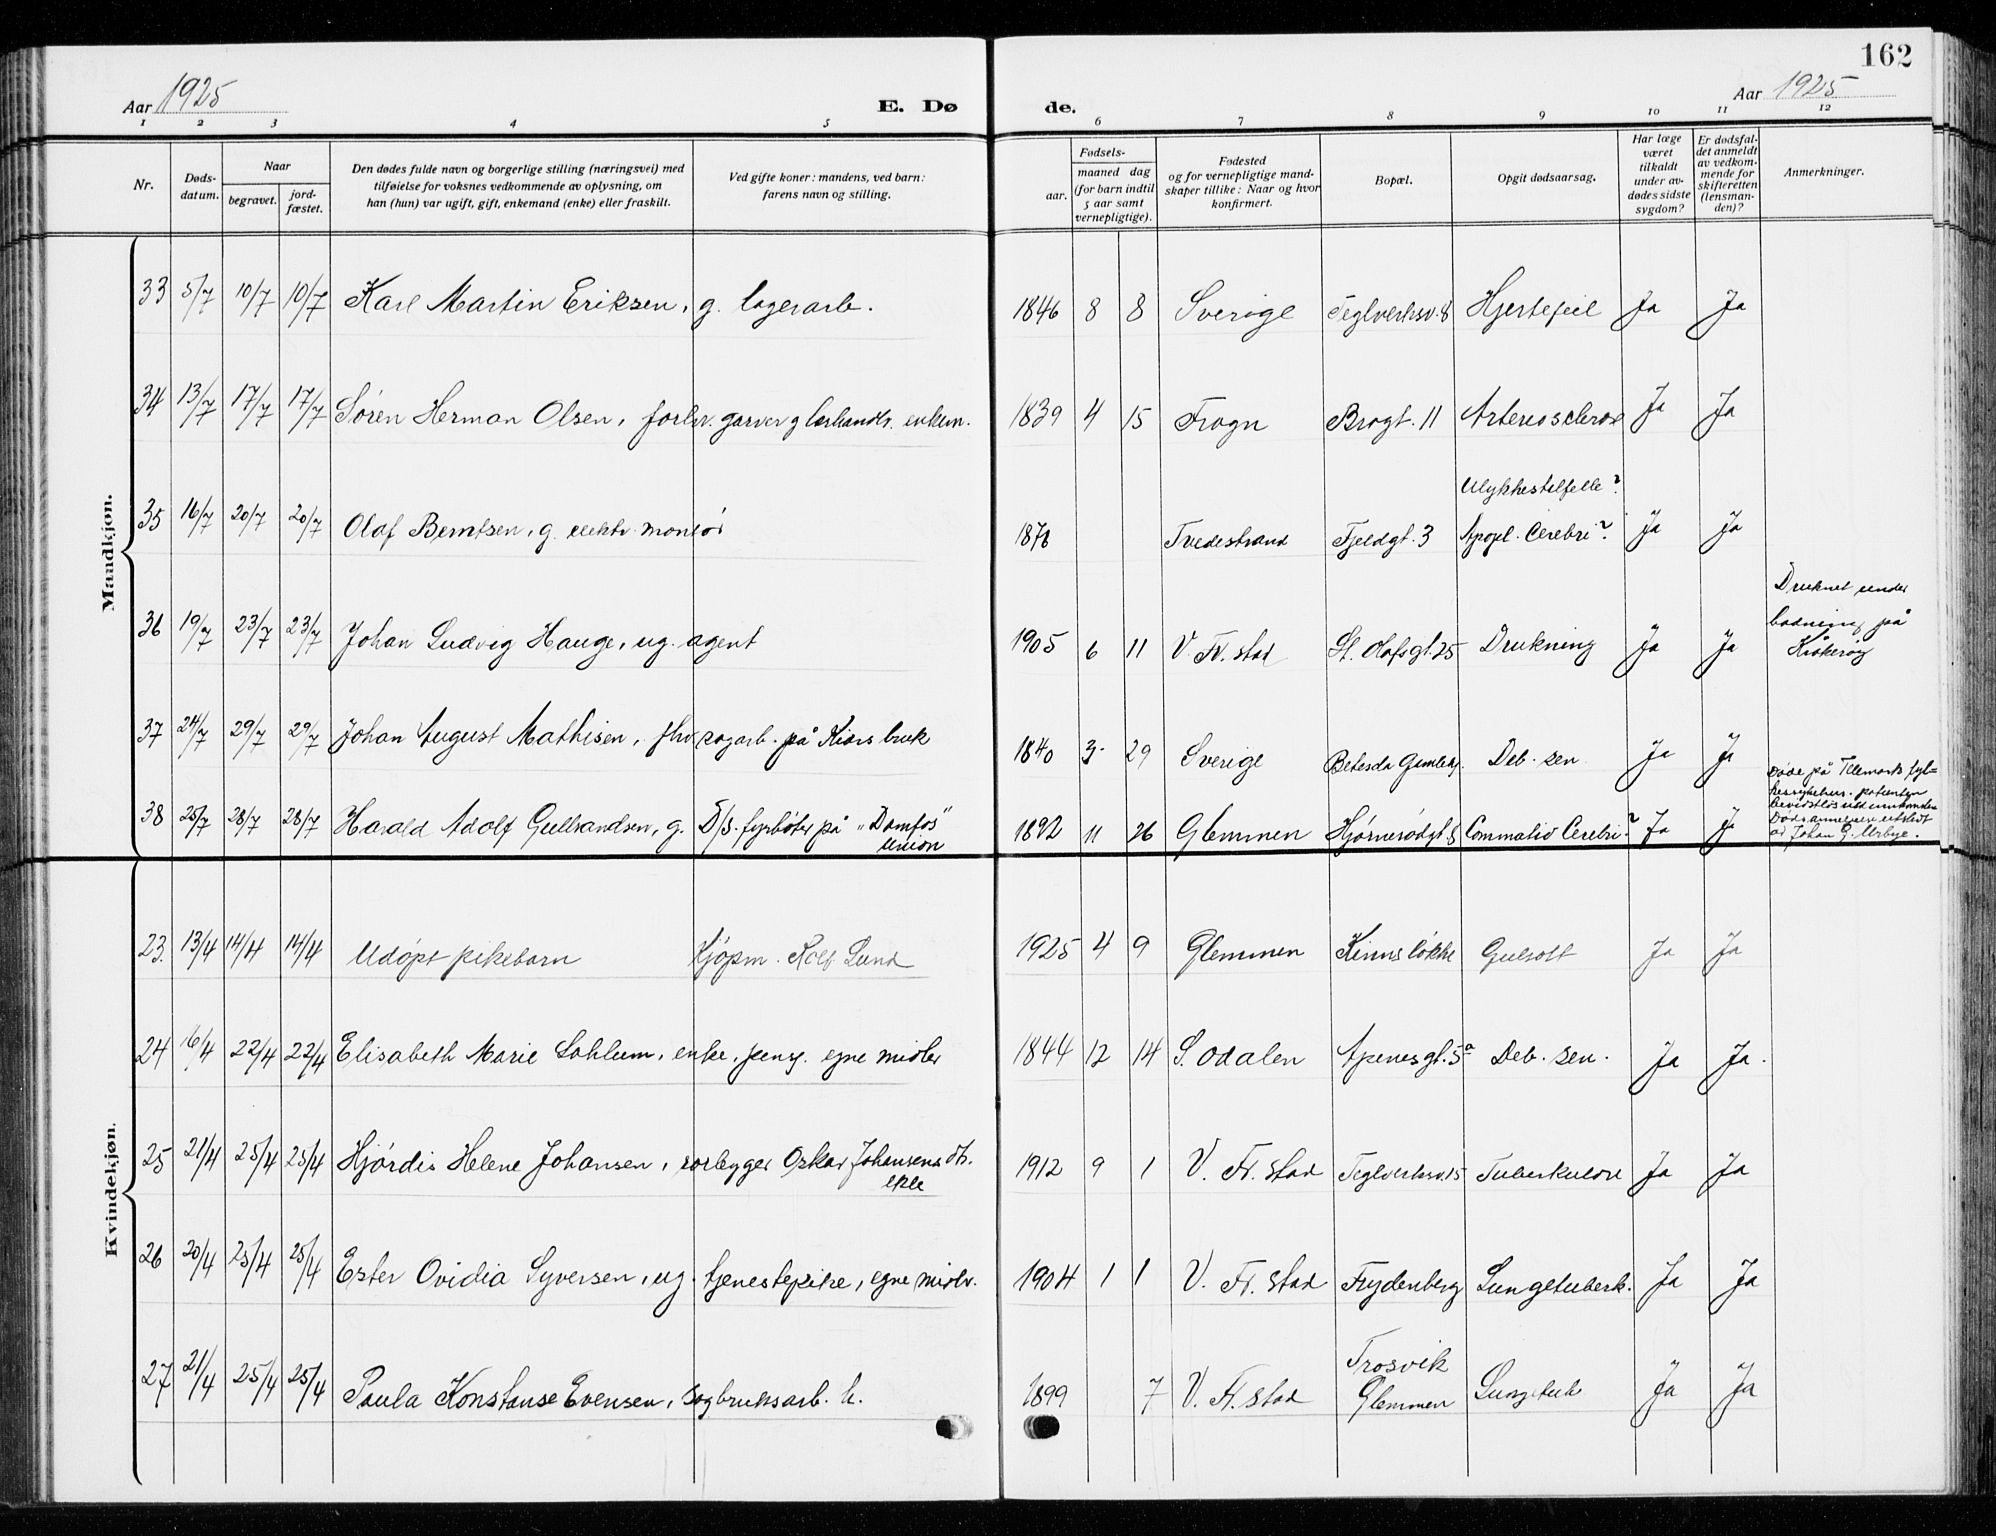 162
Aar 1925
E. Dø
de.
Aar 1925
1 2 3 4 5 6 7 8 9 10 11 12
Nr.
Døds-
datum.
Naar
begravet.
jord-
fæstet.
Den dødes fulde navn og borgerlige stilling (næringsvei) med
tilføielse for voksnes vedkommende av oplysning, om
han (hun) var ugift, gift, enkemand (enke) eller fraskilt.
Ved gifte koner: mandens, ved barn:
farens navn og stilling.
Fødsels-
aar.
maaned dag
(for barn indtil
5 aar samt
vernepligtige).
Fødested
og for vernepligtige mand-
skaper tillike: Naar og hvor
konfirmert.
Bopæl.
Opgit dødsaarsag.
Har læge
været
tilkaldt
under av-
dødes sidste
sygdom?
Er dødsfal-
det anmeldt
av vedkom-
mende for
skifteretten
(lensman-
den)?
Anmerkninger.
Mandkjøn.
33 5/7 10/7 10/7 Karl Martin Eriksen, g. lagerarb. 1846 8 8 Sverige Teglverksv. 8 Hjertefeil Ja Ja
34 13/7 17/7 17/7 Søren Herman Olsen, forhv. garver g lærhandl. enkem. 1839 4 15 Frogn Brogt. 11 Arteriosclerose Ja Ja
Ulykkestilfelle?
35 16/7 20/7 20/7 Olaf Berntsen, g. elektr. montør 1878 Tvedestrand Fjeldgt. 3 Apopl. Cerebri? Ja Ja
Druknet under
badning på
Kråkerøy
36 19/7 23/7 23/7 Johan Ludvig Hauge, ug. agent 1905 6 11 V. Fr.stad St. Olafsgt. 25 Drukning Ja Ja
37 24/7 29/7 29/7 Johan August Mathisen, fhv. sagarb. på Kiørs bruk 1840 3 29 Sverige Betesda Gamlehj. Deb. sen. Ja Ja
Døde på Telemarks fyl=
kessykehus. patienten
bevidstløs ved innkomsten
Dødsanmeldelse utstedt
av Johan G. Urbye.
38 25/7 28/7 28/7 Harald Adolf Gulbrandsen, g. D/S. fyrbøter på "Damfos" 1892 11 26 Glemmen Hjørnerødgt. 8 Commatio Cerebri? Ja Ja
Union
Kvindekjøn.
23. 13/4 14/4 14/4 Udøpt pikebarn Kjøpm. Rolf Lund 1925 4 9 Glemmen Kinns løkke Gulsott Ja Ja
24 16/4 22/4 22/4 Elisabeth Marie Sohlum, enke, pens. egne midler 1844 12 14 S. Odalen Apenesgt. 5a Deb. sen. Ja Ja.
25 21/4 25/4 25/4 Hjørdis Helene Johansen, rørlegger Oskar Johansens dt. 1912 9 1 V. Fr. stad Teglverksv. 15 Tuberkulose Ja Ja
26 20/4 25/4 25/4 Ester Ovidia Syversen, ug. tjenestepike, egne midler. 1904 1 1 V. Fr. stad Frydenberg Lungetuberk. Ja Ja
Trosvik
27 21/4 25/4 25/4 Paula Konstanse Evensen, sagbruksarb. h. 1899 7 V. Fr. stad Glemmen Lungetub. Ja Ja